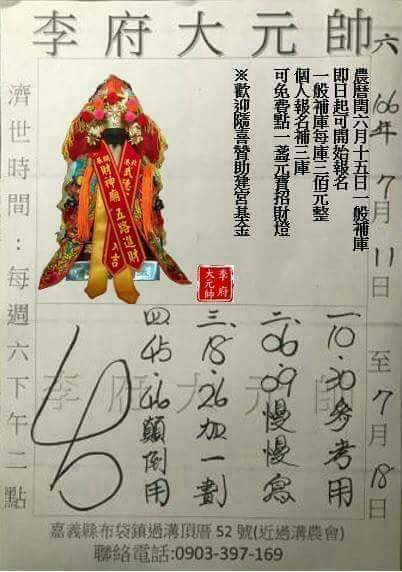 李府大元帥
六
106年7月11日至7月18日
農曆閏六月十五日一般補庫
即日起可開始報名
一般補庫每庫三佰元整
個人報名補三庫
可免費點一盞元寶招財燈
※歡迎隨喜贊助建宮基金
濟世時間：每週六下午二點
財神廟
五路進財
李府
大元帥
李府大元帥
一、10.30參考用
二、06.09慢慢急
三、18.26加一劃
四、45.46顛倒用
嘉義縣布袋鎮過溝頂厝 52 號(近過溝農會)
聯絡電話:0903-397-169